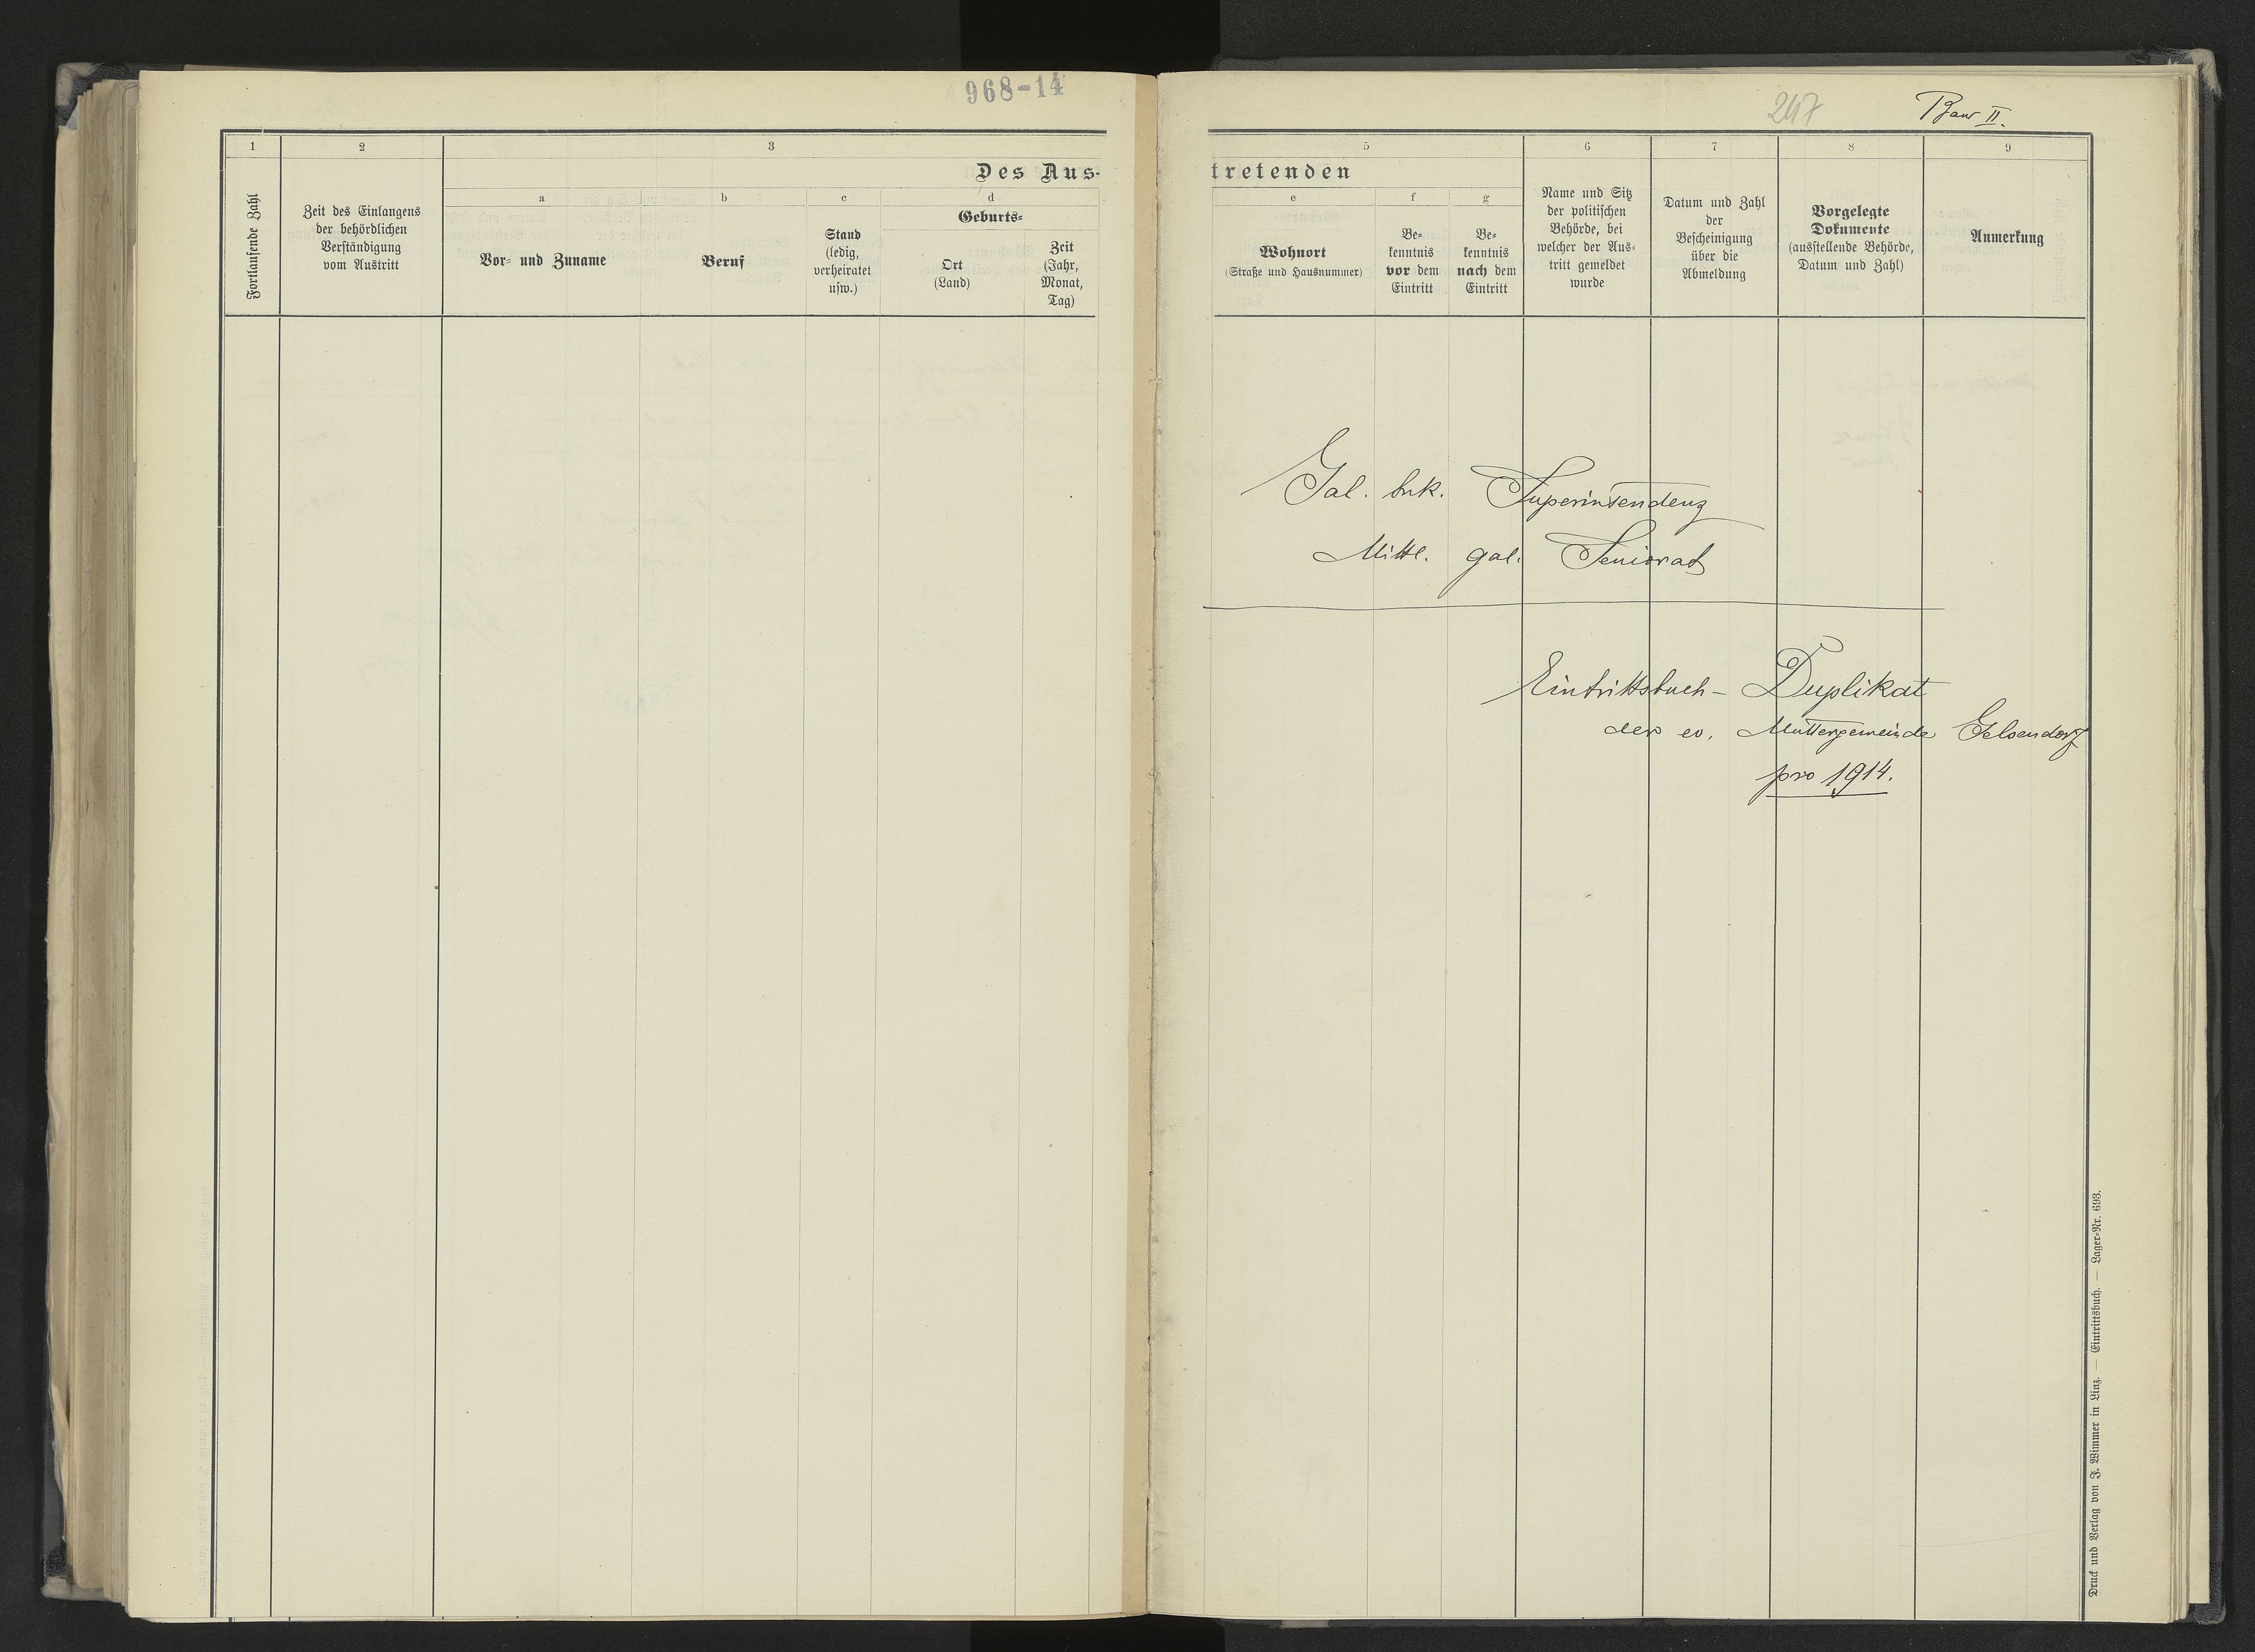 968-14
1
2
3
Des Aus-
Fortlaufende Zahl
Zeit des Einlangens
der behördlichen
Verständigung
vom Austritt
a
b
c
d
Vor- und Zuname
Beruf
Stand
(ledig,
verheiratet
usw.)
Geburts-
Ort
(Land)
Zeit
(Jahr,
Monat,
Tag)
247
II.
5
6
7
8
9
tretenden
e
f
g
Wohnort
(Straße und Hausnummer)
Be-
kenntnis
vor dem
Eintritt
Be-
kenntnis
nach dem
Eintritt
Name und Sitz
der politischen
Behörde, bei
welcher der Aus-
tritt gemeldet
wurde
Datum und Zahl
der
Bescheinigung
über die
Abmeldung
Vorgelegte
Dokumente
(ausstellende Behörde,
Datum und Zahl)
Anmerkung
Gal. buk. Superintendenz
Mittl. gal. Seniorat
Eintrittsbuch- Duplikat
der ev. Muttergemeinde Gelsendorf
pro 1914.
Druck und Verlag von F. Wimmer in Linz. — Eintrittsbuch. — Lager-Nr. 693.